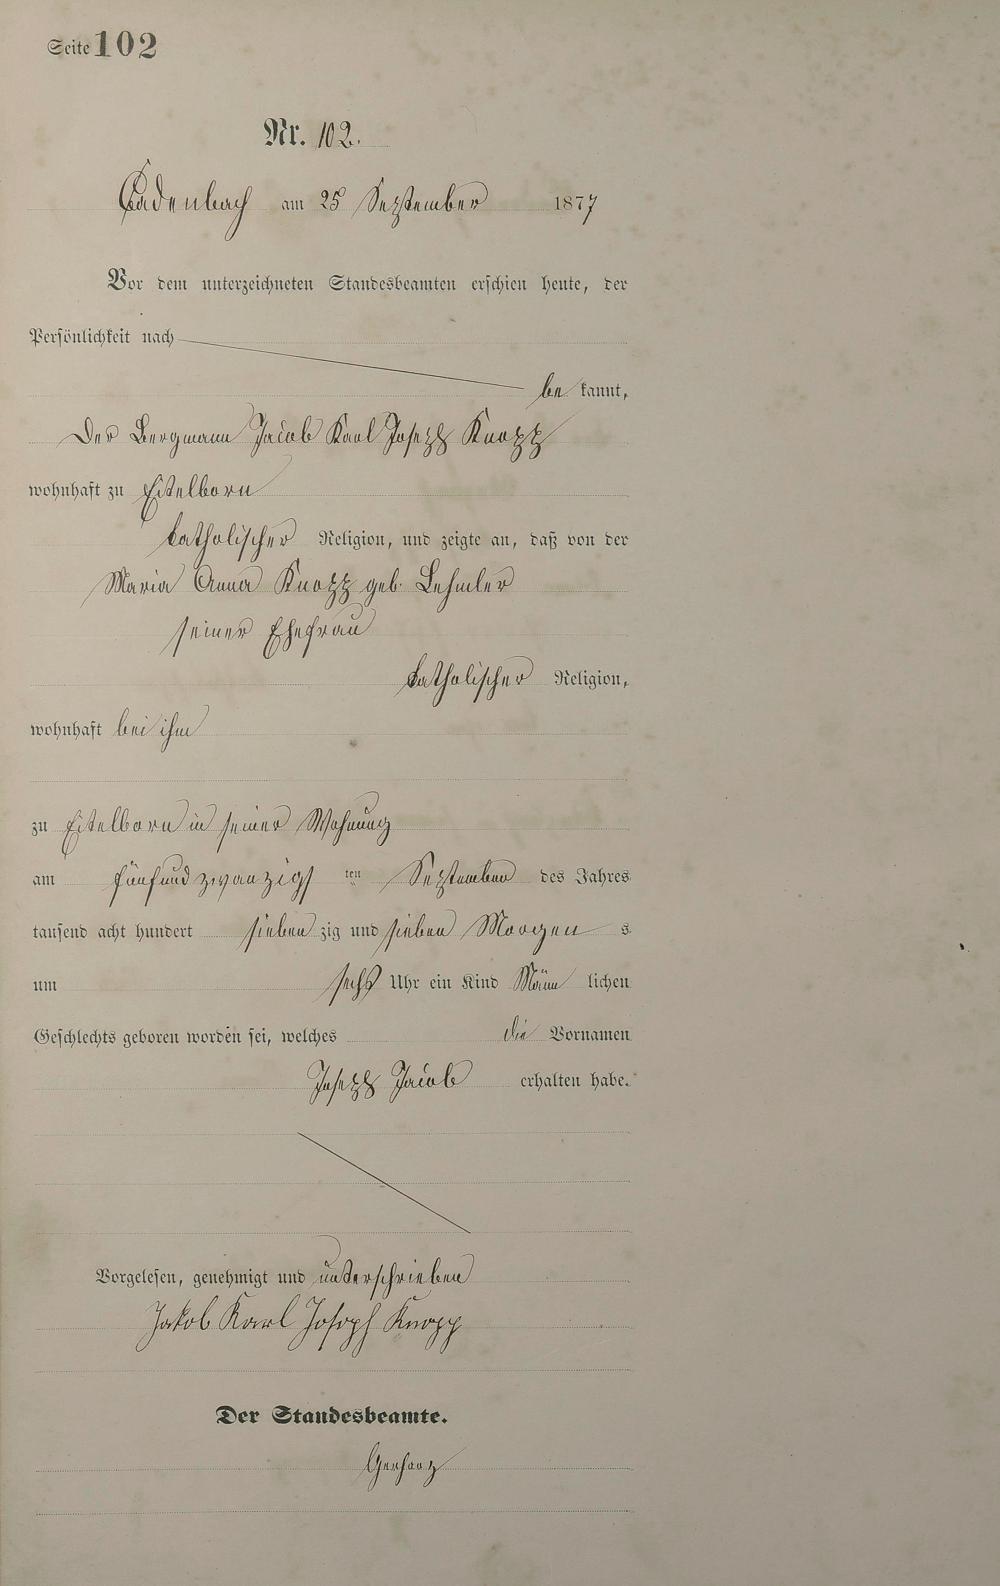 Seite 102
Nr. 102.
Cadenbach am 25 September 1877
Vor dem unterzeichneten Standesbeamten erschien heute, der
Persönlichkeit nach
be kannt,
Der Bergmann Jacob Karl Joseph Knopp
wohnhaft zu Eitelborn
katholischer Religion, und zeigte an, daß von der
Maria Anna Knopp geb. Lehmler
seiner Ehefrau
katholischer Religion,
wohnhaft bei ihm
zu Eitelborn in seiner Wohnung
am fünfundzwanzigs ten September des Jahres
tausend acht hundert sieben zig und sieben Morgen s
um sechs Uhr ein Kind Männ lichen
Geschlechts geboren worden sei, welches die Vornamen
Joseph Jacob erhalten habe.
Vorgelesen, genehmigt und unterschrieben
Jakob Karl Joseph Knopp
Der Standesbeamte.
Gerharz